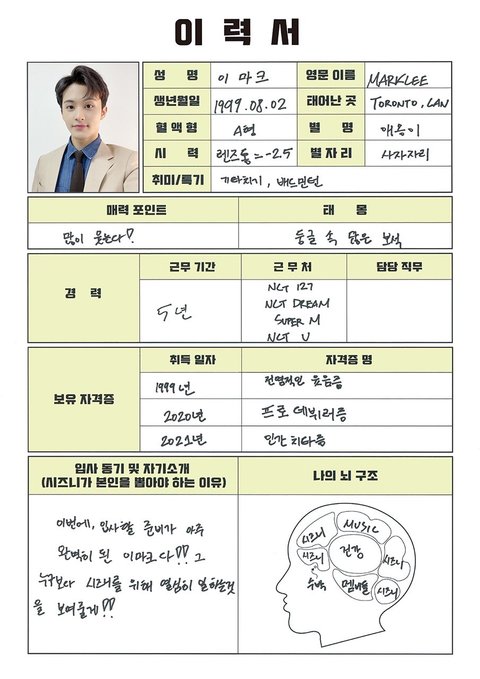 이 력 서
성 명 이 마크 영문 이름 MARKLEE
생년월일 1999.08.02 태어난 곳 TORONTO, CAN
혈 액 형 A형 별 명
시 력 렌즈 -25 별 자 리 사자자리
취미/특기 기타치기, 배드민턴
매력 포인트 태 몽
많이 웃는다! 동굴 속 많은 보석
근무 기간 근 무 처 담당 직무
경 력
5년
NCT 127
NCT DREAM
SUPER M
NCT U
취득 일자 자격증 명
보유 자격증
1999년 전형적인
2020년 프로 데뷔러증
2021년 인간 치타증
입사 동기 및 자기소개
(시즈니가 본인을 뽑아야 하는 이유)
나의 뇌 구조
이번에, 입사할 준비가 아주
완벽히 된 이마크다!! 그
누구보다 시즈니를 위해 열심히 일하는것
을 보여줄게!!
시즈니
MUSIC
시즈니
건강
시즈니
수박
멤버들
시즈니